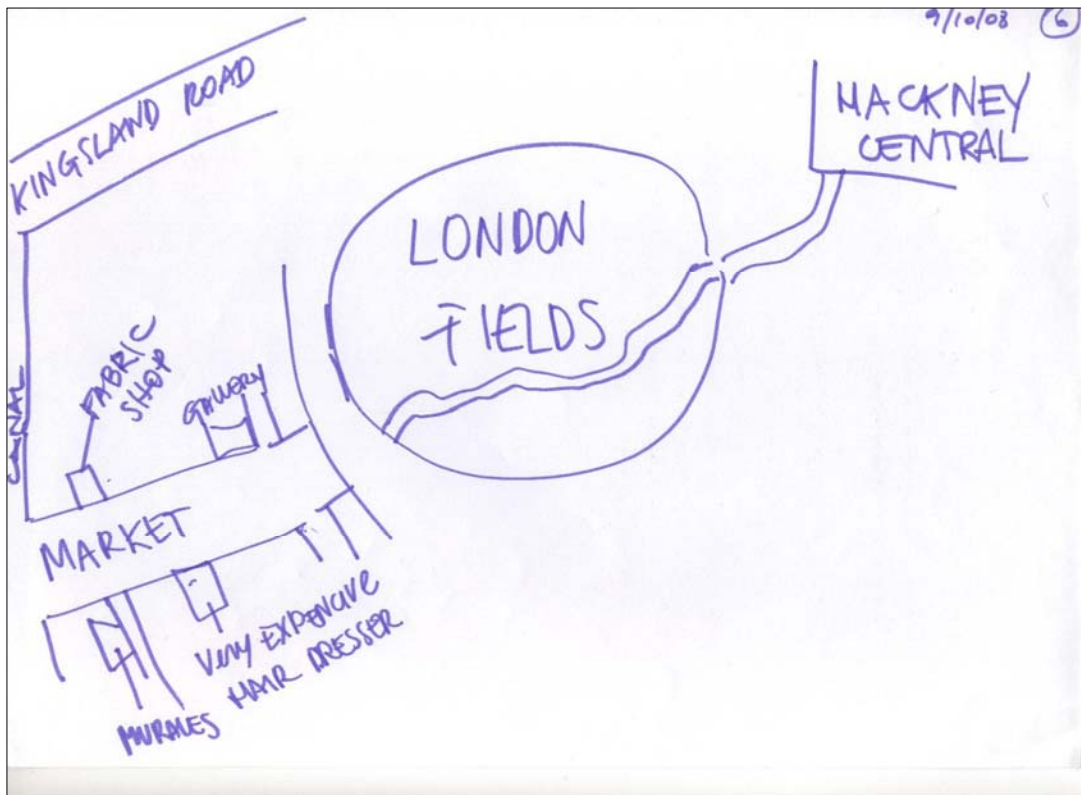 9/10/08 6
KINGSLAND ROAD
HACKNEY
CENTRAL
LONDON
FIELDS
CANAL
FABRIC
SHOP
GALLERY
MARKET
VERY EXPENCIVE
HAIR DRESSER
MURALES